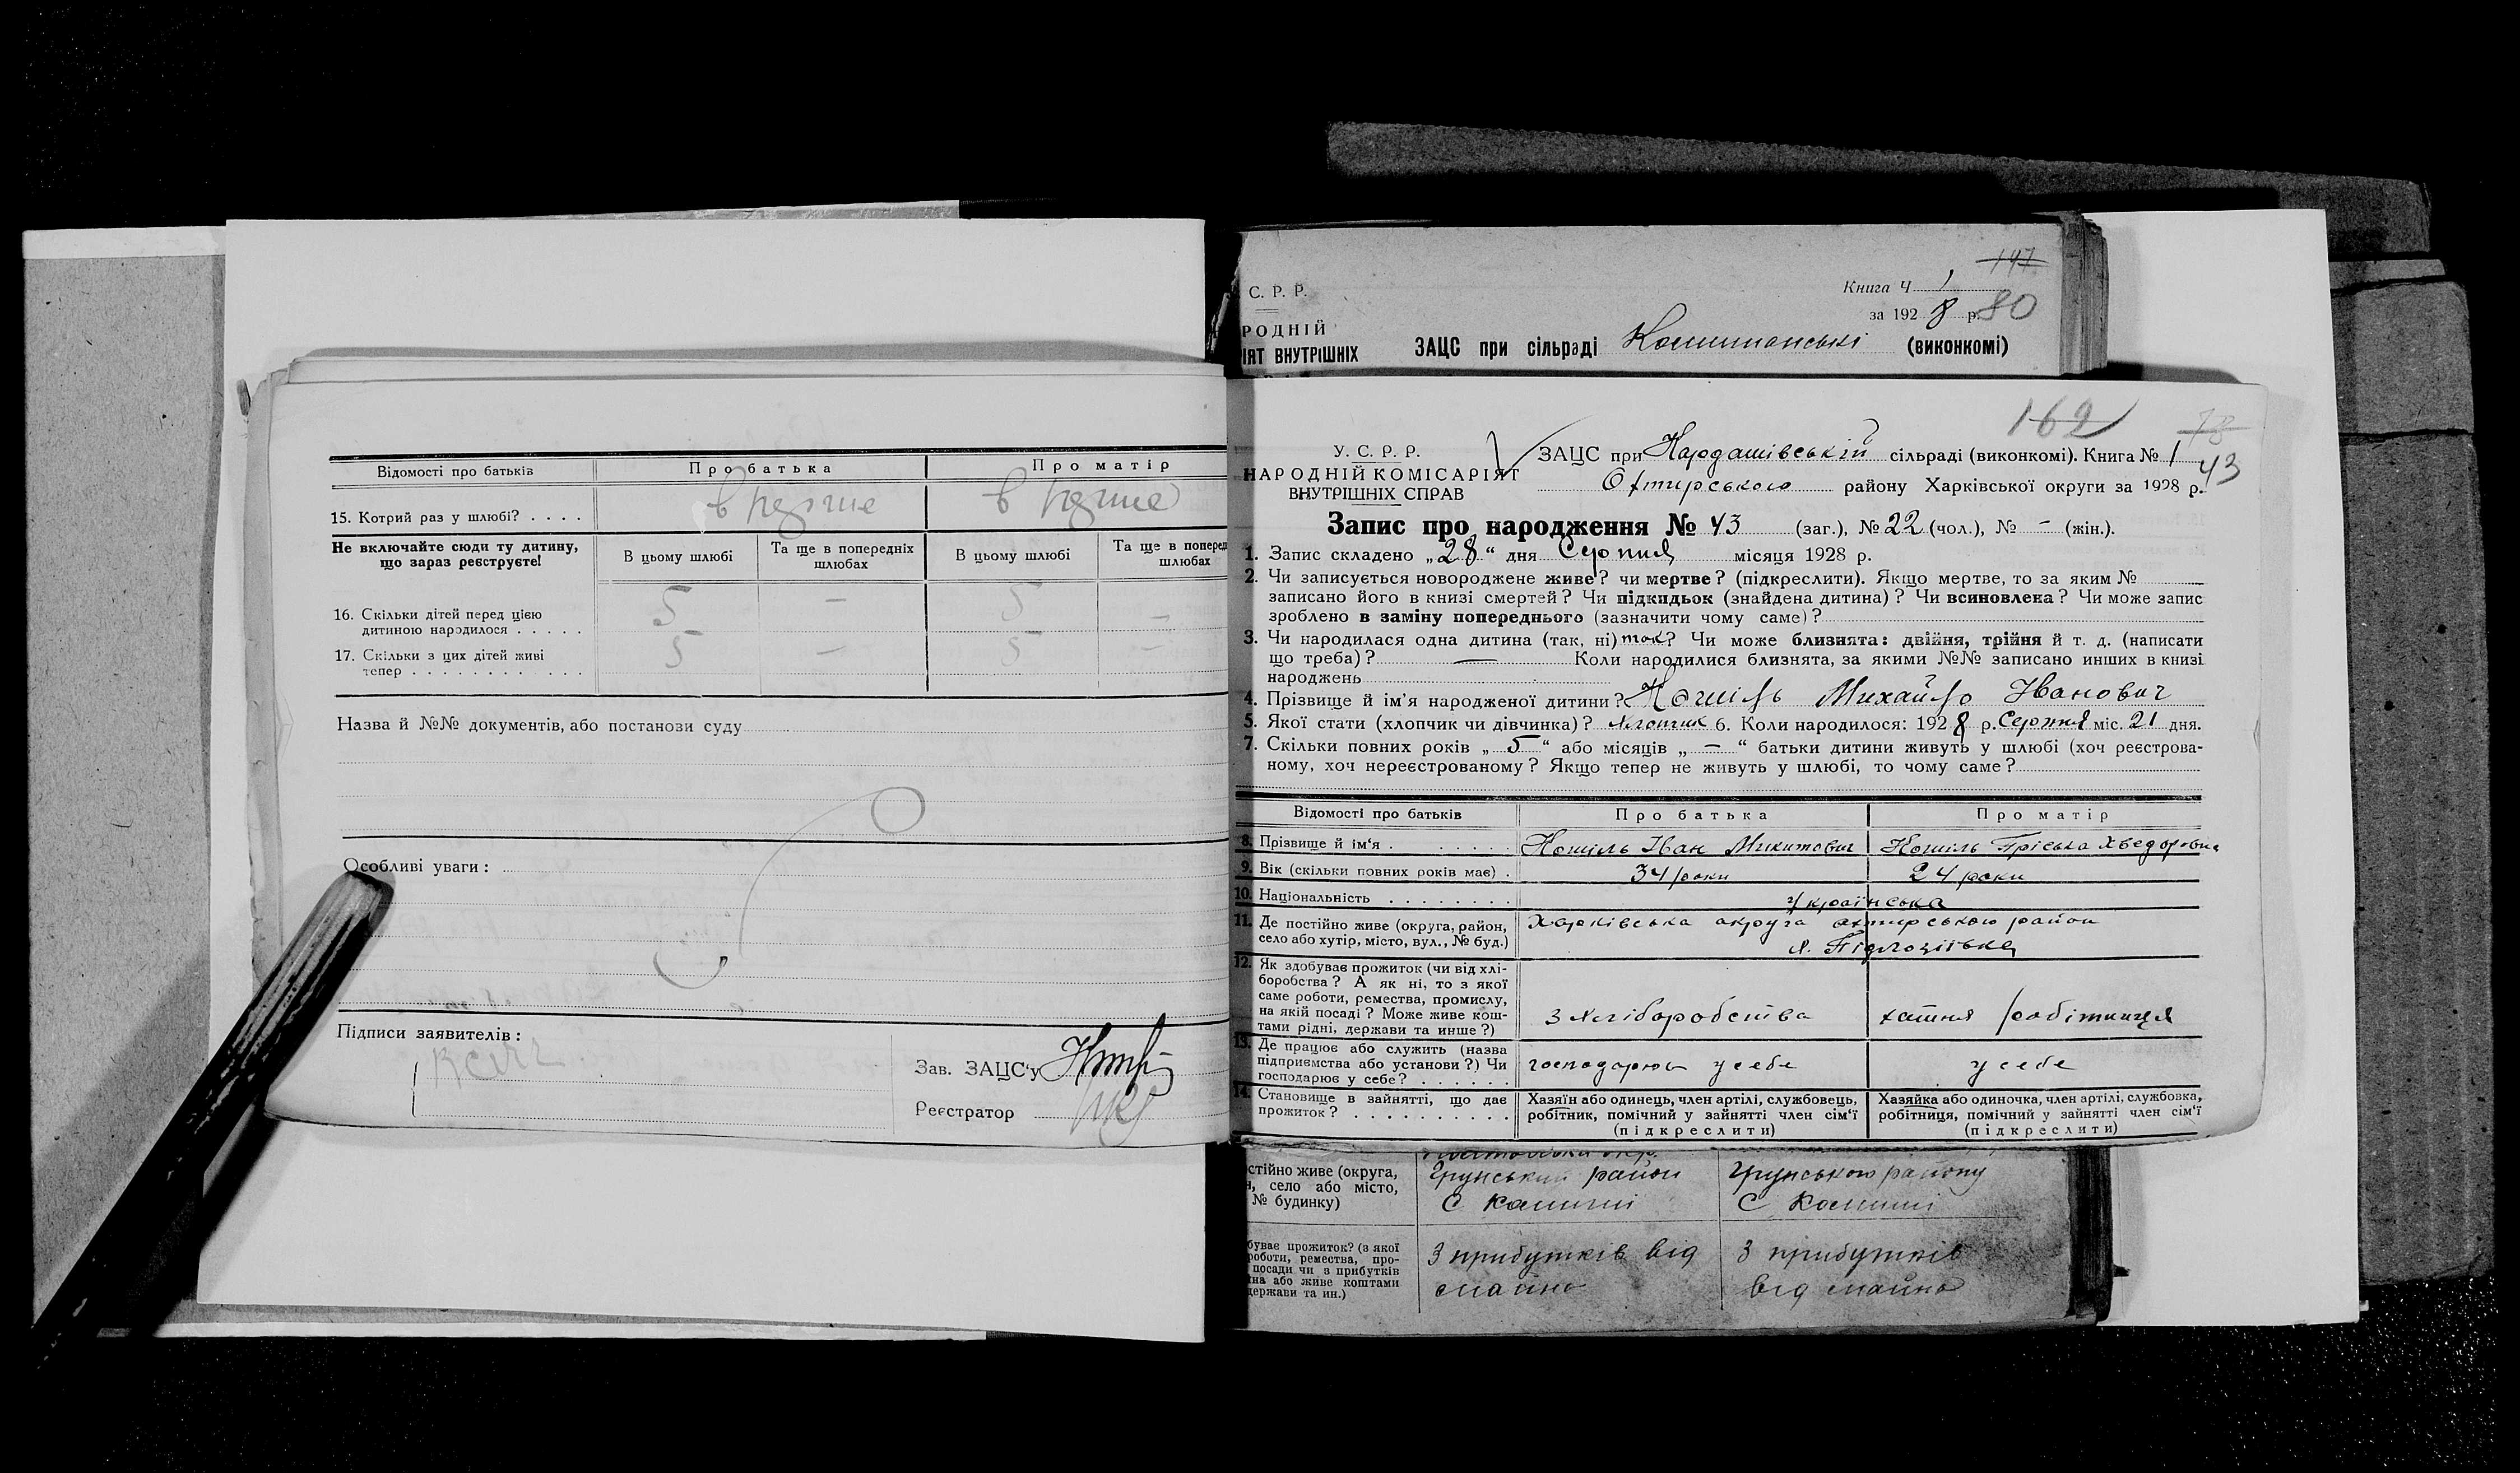 Відомості про батьків
Про батька
Про матір
15. Котрий раз у шлюбі? . . . .
Не включайте сюди ту дитину,
що зараз реєструєте!
В цьому шлюбі
Та ще в попередніх
шлюбах
В цьому шлюбі
Та ще в поперед
шлюбах
16. Скільки дітей перед цією
дитиною народилося . . . . .
5 — 5 —
17. Скільки з цих дітей живі
тепер . . . . . . . . . . . .
5 — 5 —
Назва й №№ документів, або постанови суду
Особливі уваги:
Підписи заявителів:
Зав. ЗАЦС'у
Реєстратор
147
С. Р. Р.
Книга Ч 1
за 1928 р. 80
РОДНІЙ
ІЯТ ВНУТРІШНІХ
ЗАЦС при сільраді (виконкомі)
162
78
У. С. Р. Р.
НАРОДНІЙ КОМІСАРІЯТ
ВНУТРІШНІХ СПРАВ
ЗАЦС при Кардашівській сільраді (виконкомі). Книга № 1
43
Охтирського району Харківської округи за 1928 р.
Запис про народження № 43 (заг.), № 22 (чол.), № - (жін.).
1. Запис складено „28“ дня Серпня місяця 1928 р.
2. Чи записується новороджене живе? чи мертве? (підкреслити). Якщо мертве, то за яким №
записано його в книзі смертей? Чи підкидьок (знайдена дитина)? Чи всиновлена? Чи може запис
зроблено в заміну попереднього (зазначити чому саме)?
3. Чи народилася одна дитина (так, ні) так? Чи може близнята: двійня, трійня й т. д. (написати
що треба)? — Коли народилися близнята, за якими №№ записано инших в книзі
народжень
4. Прізвище й ім'я народженої дитини? Кошіль Михайло Іванович
5. Якої стати (хлопчик чи дівчинка)? хлопчик 6. Коли народилося: 1928 р. Серпня міс. 21 дня.
7. Скільки повних років „5“ або місяців „—“ батьки дитини живуть у шлюбі (хоч реєстрова-
ному, хоч нереєстрованому? Якщо тепер не живуть у шлюбі, то чому саме?
Відомості про батьків
Про батька
Про матір
8. Прізвище й ім'я . . . . . .
Кошіль Іван Микитович
Кошіль Хведорівна
9. Вік (скільки повних років має) .
34 роки
24 роки
10. Національність . . . . . . . .
Українська
11. Де постійно живе (округа, район,
село або хутір, місто, вул., № буд.)
Харківська округа Охтирського район
12. Як здобуває прожиток (чи від хлі-
боробства? А як ні, то з якої
саме роботи, ремества, промислу,
на якій посаді? Може живе кош-
тами рідні, держави та инше?)
З хліборобства
хатня робітниця
13. Де працює або служить (назва
підприємства або установи?) Чи
господарює у себе? . . . . . .
господарює у себе
у себе
14. Становище в зайнятті, що дає
прожиток? . . . . . . . . . .
Хазяїн або одинець, член артілі, службовець,
робітник, помічний у зайнятті член сім'ї
(підкреслити)
Хазяйка або одиночка, член артілі, службовка,
робітниця, помічний у зайнятті член сім'ї
(підкреслити)
стійно живе (округа,
н, село або місто,
№ будинку)
Грунський район
С
Грунського району
С
буває прожиток? (з якої
роботи, ремества, про-
посади чи з прибутків
на або живе коштами
держави та ин.)
З прибутків від
майна
З прибутків
від майна